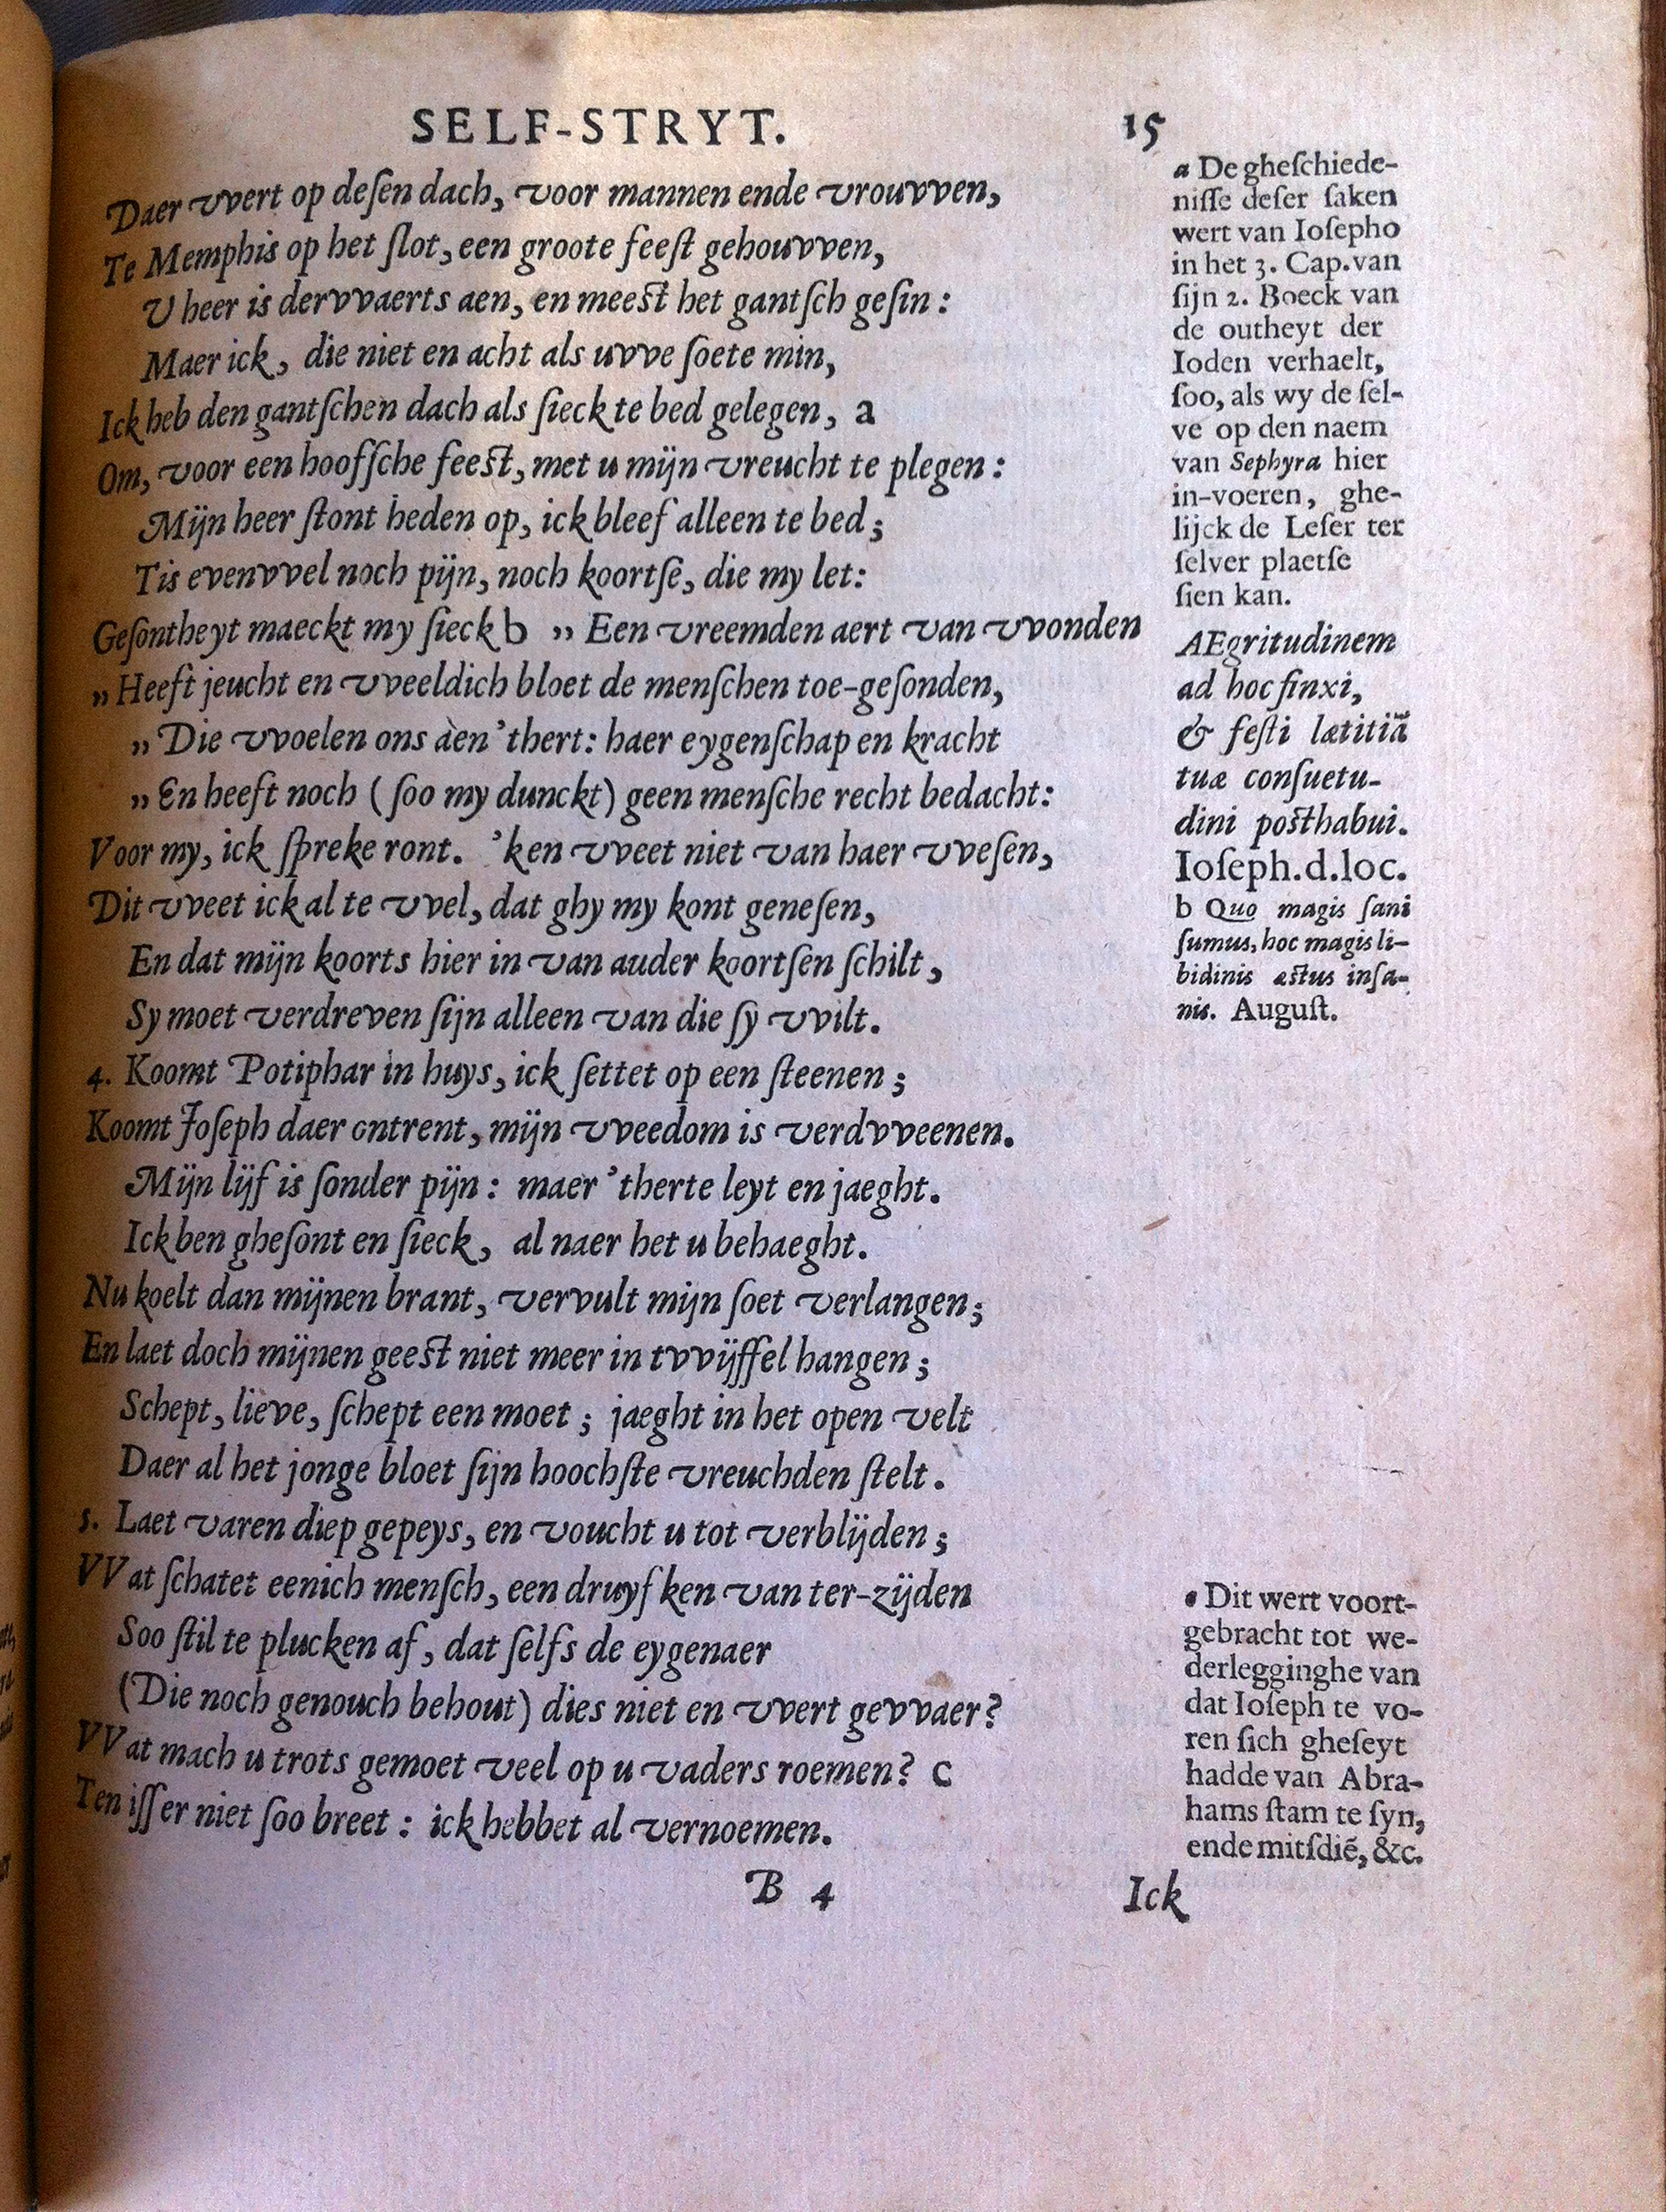 SELF-STRYT. 15
Daer vvert op deſen dach, voor mannen ende vrouvven,
Te Memphis op het ſlot, een groote feeſt gehouvven,
V heer is dervvaerts aen, en meeſt het gantſch geſin:
Maer ick, die niet en acht als uvve ſoete min,
Ick heb den gantſchen dach als ſieck te bed gelegen, a
Om, voor een hoofſche feeſt, met u mijn vreucht te plegen:
Mijn heer ſtont heden op, ick bleef alleen te bed;
Tis evenvvel noch pijn, noch koortſe, die my let:
Geſontheyt maeckt my ſieck b „ Een vreemden aert van vvonden
„ Heeft jeucht en vveeldich bloet de menſchen toe-geſonden,
„ Die vvoelen ons aen 'thert: haer eygenſchap en kracht
„ En heeft noch (ſoo my dunckt) geen menſche recht bedacht:
Voor my, ick ſpreke ront. 'ken vveet niet van haer vveſen,
Dit vveet ick al te vvel, dat ghy my kont geneſen,
En dat mijn koorts hier in van auder koortſen ſchilt,
Sy moet verdreven ſijn alleen van die ſy vvilt.
4. Koomt Potiphar in huys, ick ſettet op een ſteenen;
Koomt Joſeph daer ontrent, mijn vveedom is verdvveenen.
Mijn lijf is ſonder pijn: maer 'therte leyt en jaeght.
Ick ben gheſont en ſieck, al naer het u behaeght.
Nu koelt dan mijnen brant, vervult mijn ſoet verlangen;
En laet doch mijnen geeſt niet meer in tvvijffel hangen;
Schept, lieve, ſchept een moet; jaeght in het open velt
Daer al het jonge bloet ſijn hoochſte vreuchden ſtelt.
5. Laet varen diep gepeys, en voucht u tot verblijden;
VVat ſchatet eenich menſch, een druyfken van ter-zijden
Soo ſtil te plucken af, dat ſelfs de eygenaer
(Die noch genouch behout) dies niet en vvert gevvaer?
VVat mach u trots gemoet veel op u vaders roemen? c
Ten iſſer niet ſoo breet: ick hebbet al vernoemen.
B 4
Ick
a De gheſchiede-
niſſe deſer ſaken
wert van Ioſepho
in het 3. Cap.van
ſijn 2. Boeck van
de outheyt der
Ioden verhaelt,
ſoo, als wy de ſel-
ve op den naem
van Sephyra hier
in-voeren, ghe-
lijck de Leſer ter
ſelver plaetſe
ſien kan.
AEgritudinem
ad hoc finxi,
& feſti lætitiã
tuæ conſuetu-
dini poſthabui.
Ioſeph.d.loc.
b Quo magis ſani
ſumus, hoc magis li-
bidinis æſtus inſa-
nis. Auguſt.
Dit wert voort-
gebracht tot we-
derlegginghe van
dat Ioſeph te vo-
ren ſich gheſeyt
hadde van Abra-
hams ſtam te ſyn,
ende mitſdiẽ, &c.